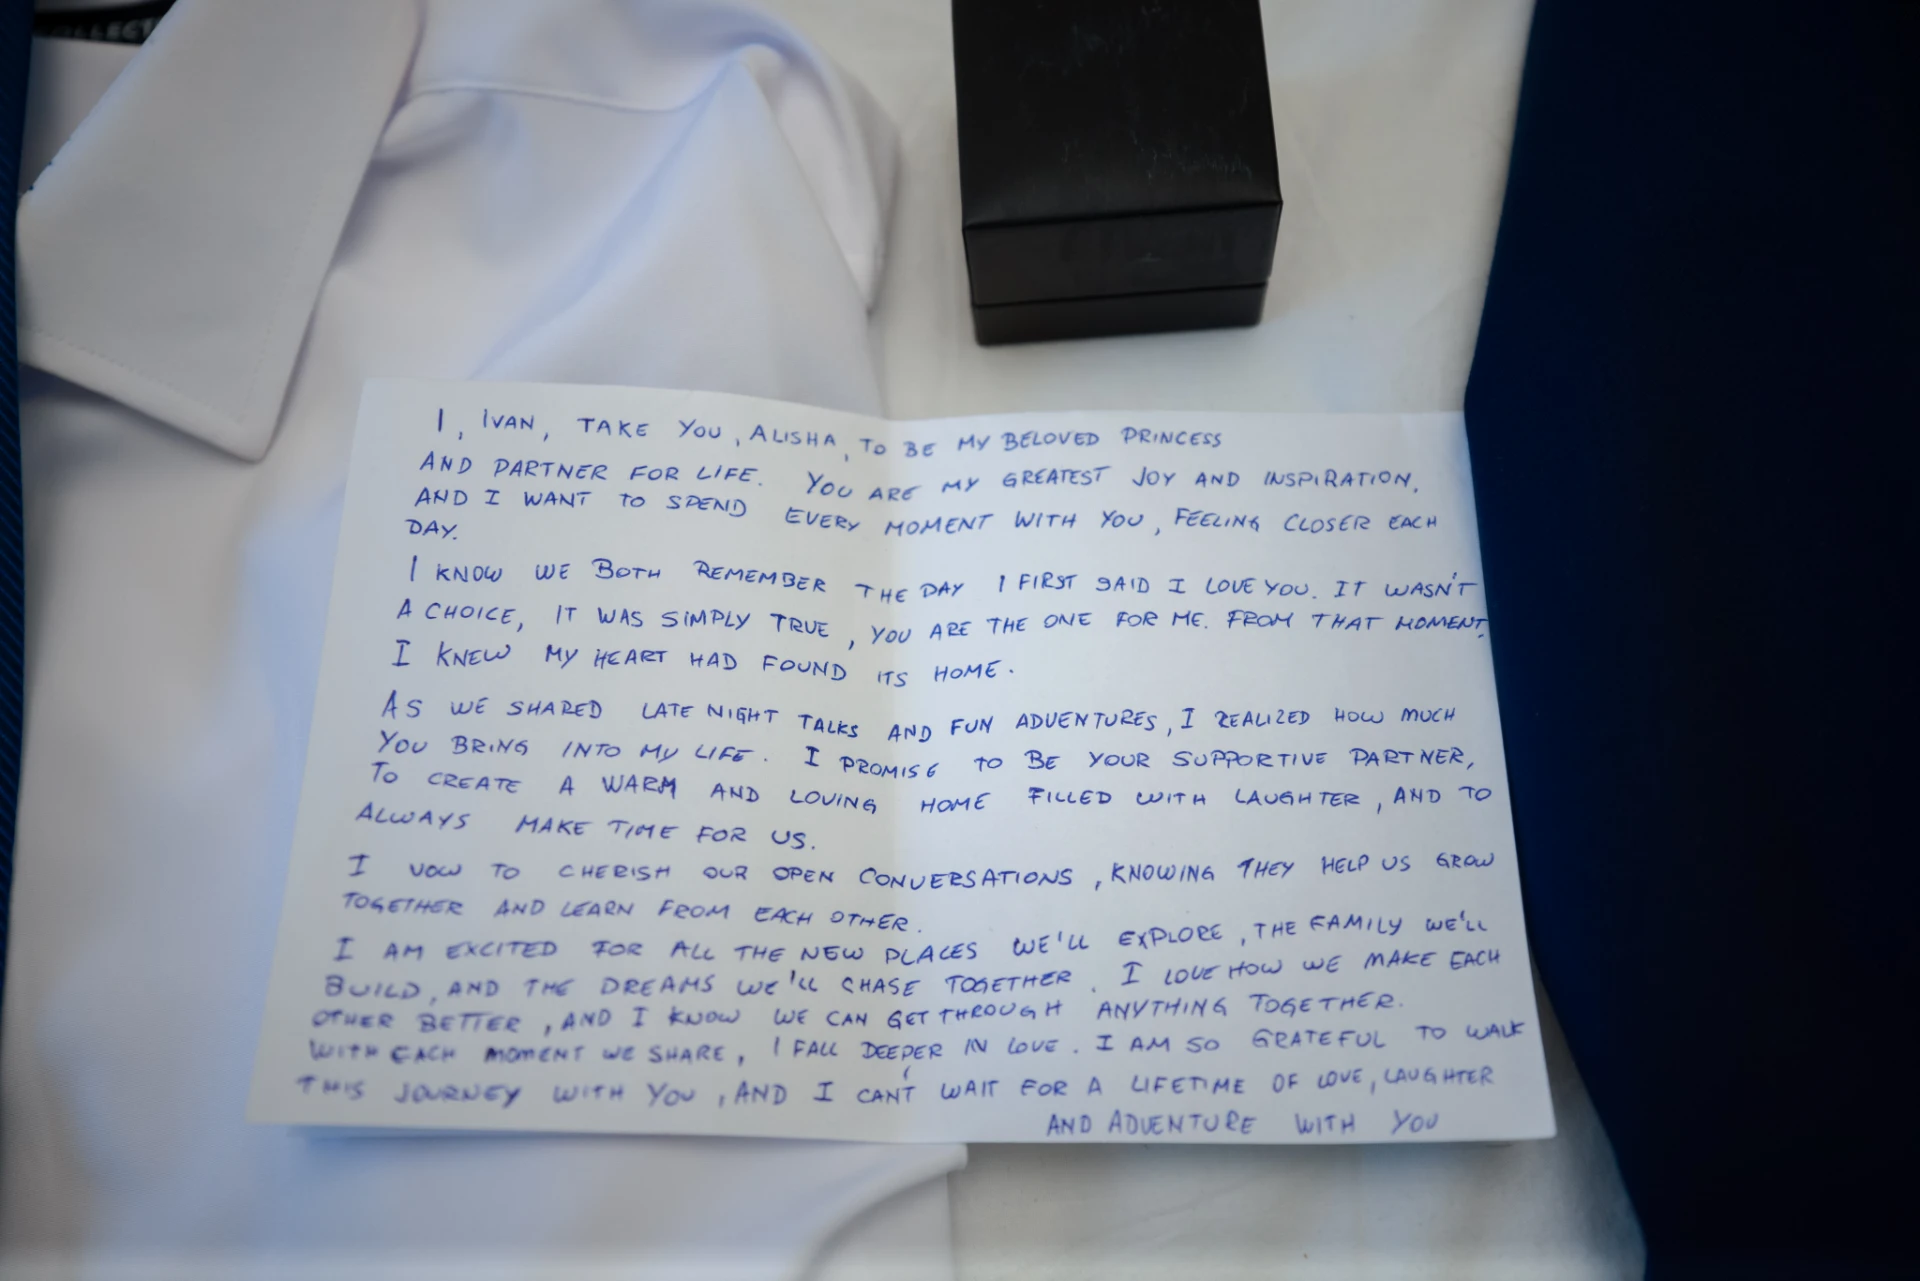 COLLECT
I, IVAN, TAKE YOU, ALISHA, TO BE MY BELOVED PRINCESS
AND PARTNER FOR LIFE. YOU ARE MY GREATEST JOY AND INSPIRATION,
AND I WANT TO SPEND EVERY MOMENT WITH YOU, FEELING CLOSER EACH
DAY.
I KNOW WE BOTH REMEMBER THE DAY I FIRST SAID I LOVE YOU. IT WASN'T
A CHOICE, IT WAS SIMPLY TRUE, YOU ARE THE ONE FOR ME. FROM THAT MOMENT,
I KNEW MY HEART HAD FOUND ITS HOME.
AS WE SHARED LATE NIGHT TALKS AND FUN ADVENTURES, I REALIZED HOW MUCH
YOU BRING INTO MY LIFE. I PROMISE TO BE YOUR SUPPORTIVE PARTNER,
TO CREATE A WARM AND LOVING HOME FILLED WITH LAUGHTER, AND TO
ALWAYS MAKE TIME FOR US.
I VOW TO CHERISH OUR OPEN CONVERSATIONS, KNOWING THEY HELP US GROW
TOGETHER AND LEARN FROM EACH OTHER.
I AM EXCITED FOR ALL THE NEW PLACES WE'LL EXPLORE, THE FAMILY WE'LL
BUILD, AND THE DREAMS WE'LL CHASE TOGETHER. I LOVE HOW WE MAKE EACH
OTHER BETTER, AND I KNOW WE CAN GET THROUGH ANYTHING TOGETHER.
WITH EACH MOMENT WE SHARE, I FALL DEEPER IN LOVE. I AM SO GRATEFUL TO WALK
THIS JOURNEY WITH YOU, AND I CAN'T WAIT FOR A LIFETIME OF LOVE, LAUGHTER
AND ADVENTURE WITH YOU